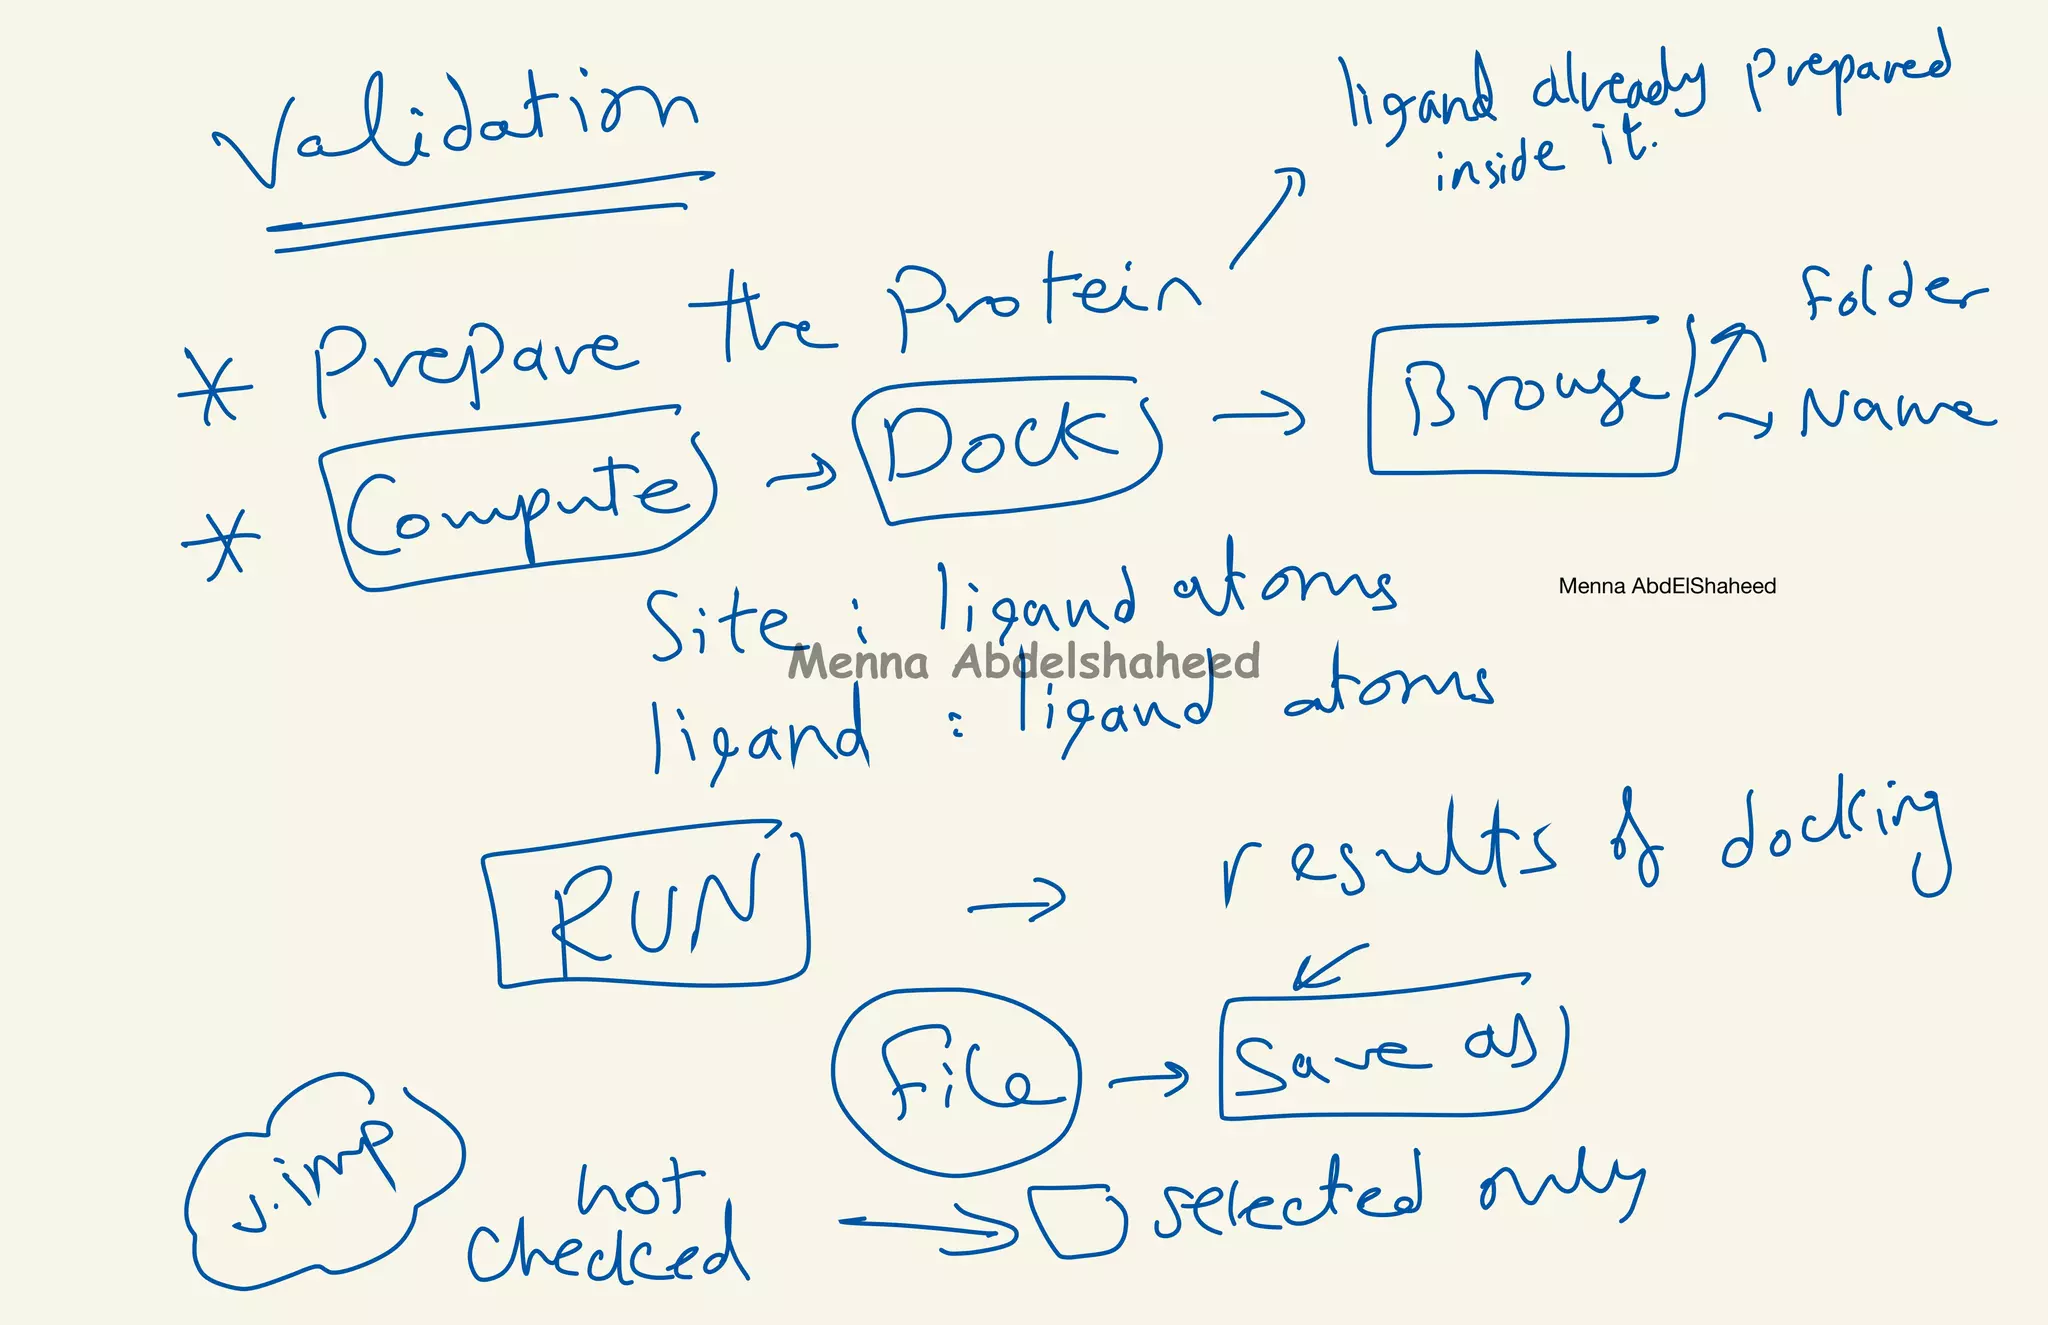 Validation
ligand already prepared
inside it.
* Prepare the Protein
* Compute → Dock → Browse
Folder
→ Name
Menna AbdElShaheed
Site : ligand atoms
Menna Abdelshaheed
ligand : ligand atoms
RUN → results of docking
File → Save as
v.imp
not
checked → selected only